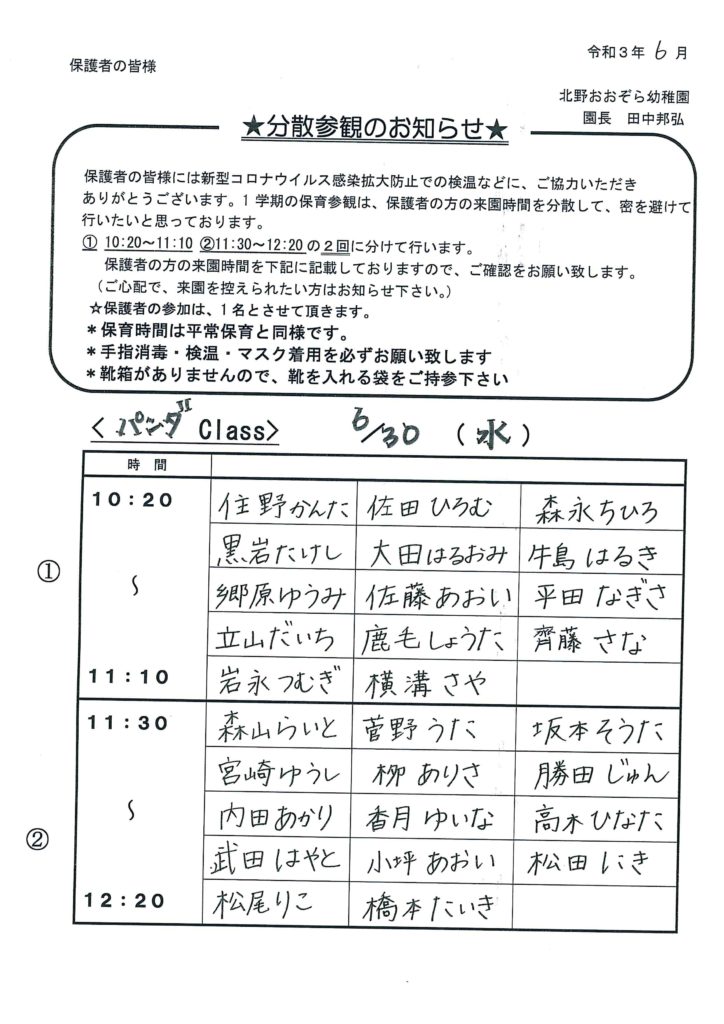 令和３年 6 月
保護者の皆様
北野おおぞら幼稚園
園長　田中邦弘
★分散参観のお知らせ★
保護者の皆様には新型コロナウイルス感染拡大防止での検温などに、ご協力いただき
ありがとうございます。１学期の保育参観は、保護者の方の来園時間を分散して、密を避けて
行いたいと思っております。
① 10:20～11:10 ②11:30～12:20 の２回に分けて行います。
保護者の方の来園時間を下記に記載しておりますので、ご確認をお願い致します。
（ご心配で、来園を控えられたい方はお知らせ下さい。）
☆保護者の参加は、１名とさせて頂きます。
＊保育時間は平常保育と同様です。
＊手指消毒・検温・マスク着用を必ずお願い致します
＊靴箱がありませんので、靴を入れる袋をご持参下さい
＜パンダII Class＞ 6/30 （水）
時　間
10：20 住野かんた 佐田ひろむ 森永ちひろ
黒岩たけし 大田はるおみ 牛島はるき
① ～ 郷原ゆうみ 佐藤あおい 平田なぎさ
立山だいち 鹿毛しょうた 齊藤さな
11：10 岩永つむぎ 横溝さや
11：30 森山らいと 菅野うた 坂本そうた
宮崎ゆうし 柳ありさ 勝田じゅん
② ～ 内田あかり 香月ゆいな 高木ひなた
武田はやと 小坪あおい 松田にき
12：20 松尾りこ 橋本たいき